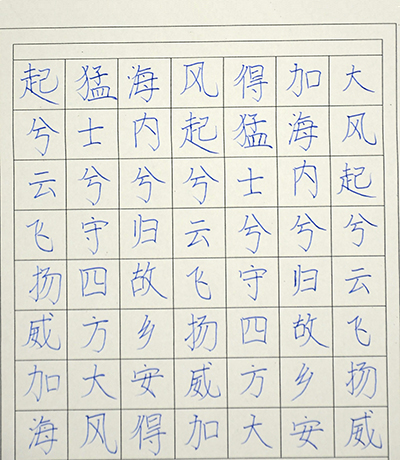 大风起兮云飞扬威
加海内兮归故乡安
得猛士兮守四方大
风起兮云飞扬威加
海内兮归故乡安得
猛士兮守四方大风
起兮云飞扬威加海